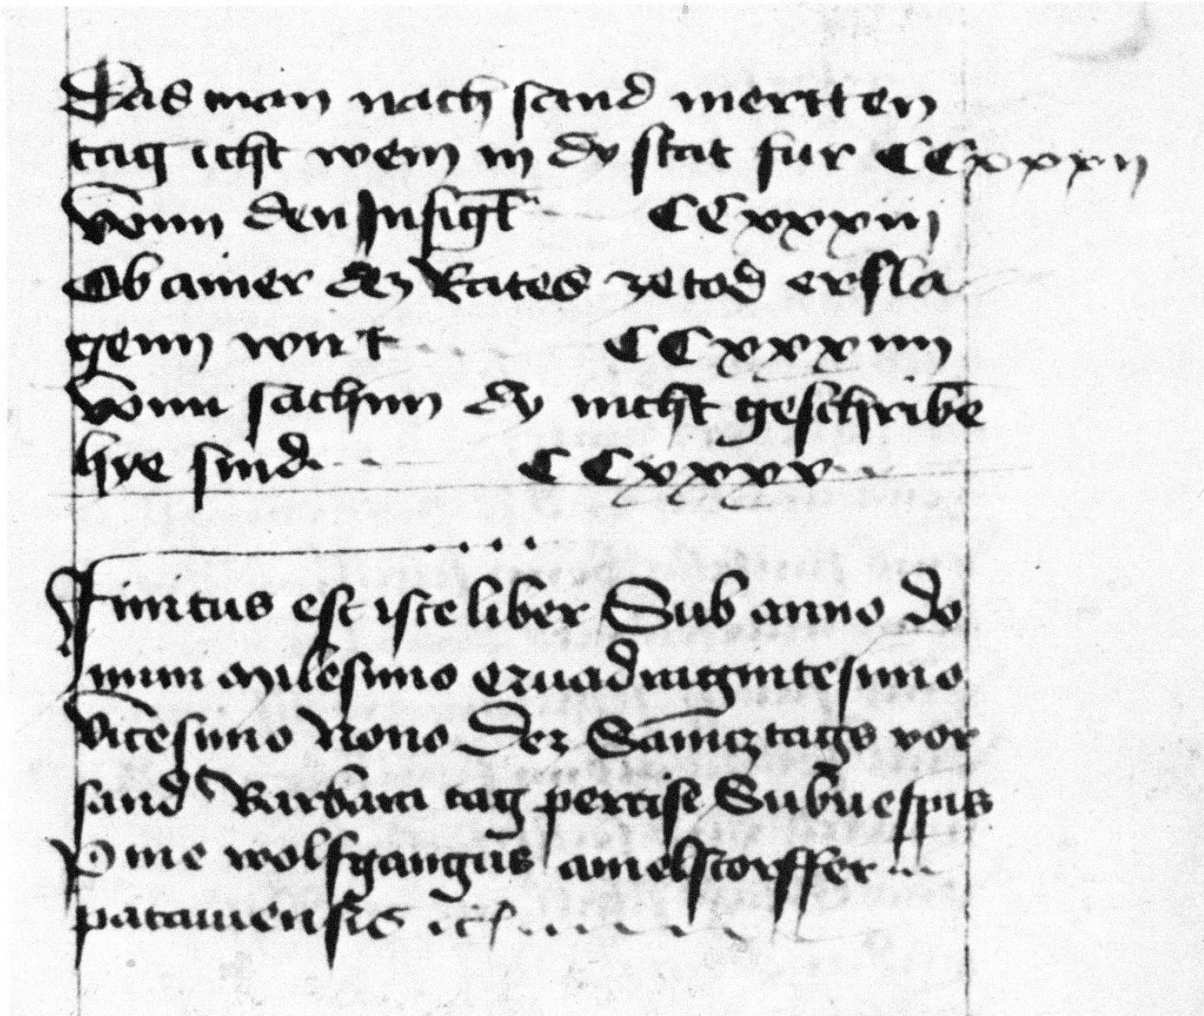 Das man nach sand mertten
tag icht wein in dy stat fur CCxxxij
Vonn den Insigl CCxxxiij
Ob ainer dez Rates ze tod ersla
genn wirt CCxxxiiij
Vonn sachnn dy nicht geschribē
hye sind CCxxxv
Finitus est iste liber Sub anno do
mini milesimo quadringintesimo
vicesimo Nono Dez Samcztags vor
sand Barbara tag Sub vesperis
P me wolfgangus amelstorffer
patauiensis